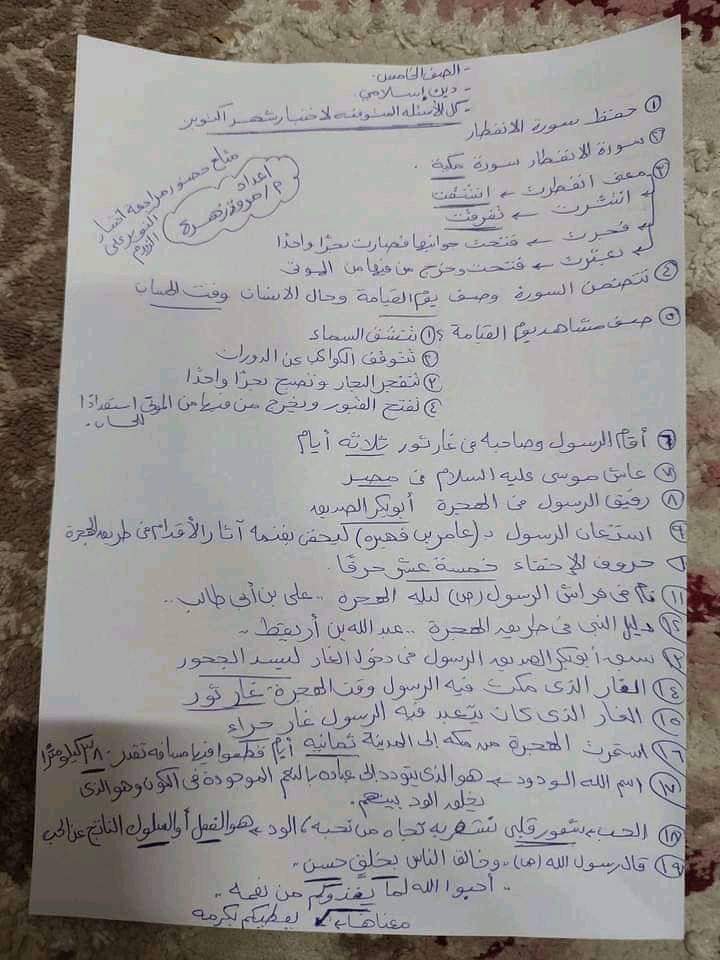 - الصف الخامس.
- دين إسلامي.
- كل الأسئلة المتوقعة لاختبار شهر اكتوبر
متاح حضور مراجعة اختبار اكتوبر على الزووم
اعداد
م/ مروة زهرة
① حفظ سورة الانفطار
② سورة الانفطار سورة مكية.
③ معنى انفطرت ← انشقت
انتثرت ← تفرقت
فجرت ← فتحت جوانبها فصارت بحرًا واحدًا
بعثرت ← فتحت وخرج من فيها من الموتى
④ تتضمن السورة وصف يوم القيامة وحال الانسان وقت الحساب
⑤ صف مشاهد يوم القيامة ؟ ① تنشق السماء
② تتوقف الكواكب عن الدوران
③ تتفجر البحار وتصبح بحرًا واحدًا
④ تفتح القبور ويخرج من فيها من الموتى استعدادًا للحساب.
⑥ أقام الرسول وصاحبه في غار ثور ثلاثة أيام
⑦ عاش موسى عليه السلام في مصر
⑧ رفيق الرسول في الهجرة أبوبكر الصديق
⑨ استعان الرسول بـ (عامر بن فهيرة) ليخفى بغنمه آثار الأقدام في طريق الهجرة
حروف الإخفاء خمسة عشر حرفًا.
⑪ نام في فراش الرسول (ص) ليلة الهجرة .. على بن أبي طالب ..
⑫ دليل النبي في طريق الهجرة .. عبد الله بن أريقط ..
⑬ سبق أبوبكر الصديق الرسول في دخول الغار ليسد الجحور
⑭ الغار الذى مكث فيه الرسول وقت الهجرة غار ثور
⑮ الغار الذى كان يتعبد فيه الرسول غار حراء
⑯ استمرت الهجرة من مكه إلى المدينة ثمانية أيام قطعوا فيها مسافة تقدر ٣٨٠ كيلو مترًا
⑰ اسم الله الودود ← هو الذى يتودد إلى عباده بالنعم الموجودة في الكون وهو الذى
يخلق الود بينهم.
⑱ الحب ← شعور قلبى تشعر به تجاه من تحبه، الود ← هو الفعل أو السلوك الناتج عن الحب
⑲ قال رسول الله (ص) .. وخالق الناس بخلق حسن ..
.. أحبوا الله لما يغذوكم من نعمه ..
معناها ← يعطيكم بكرمه